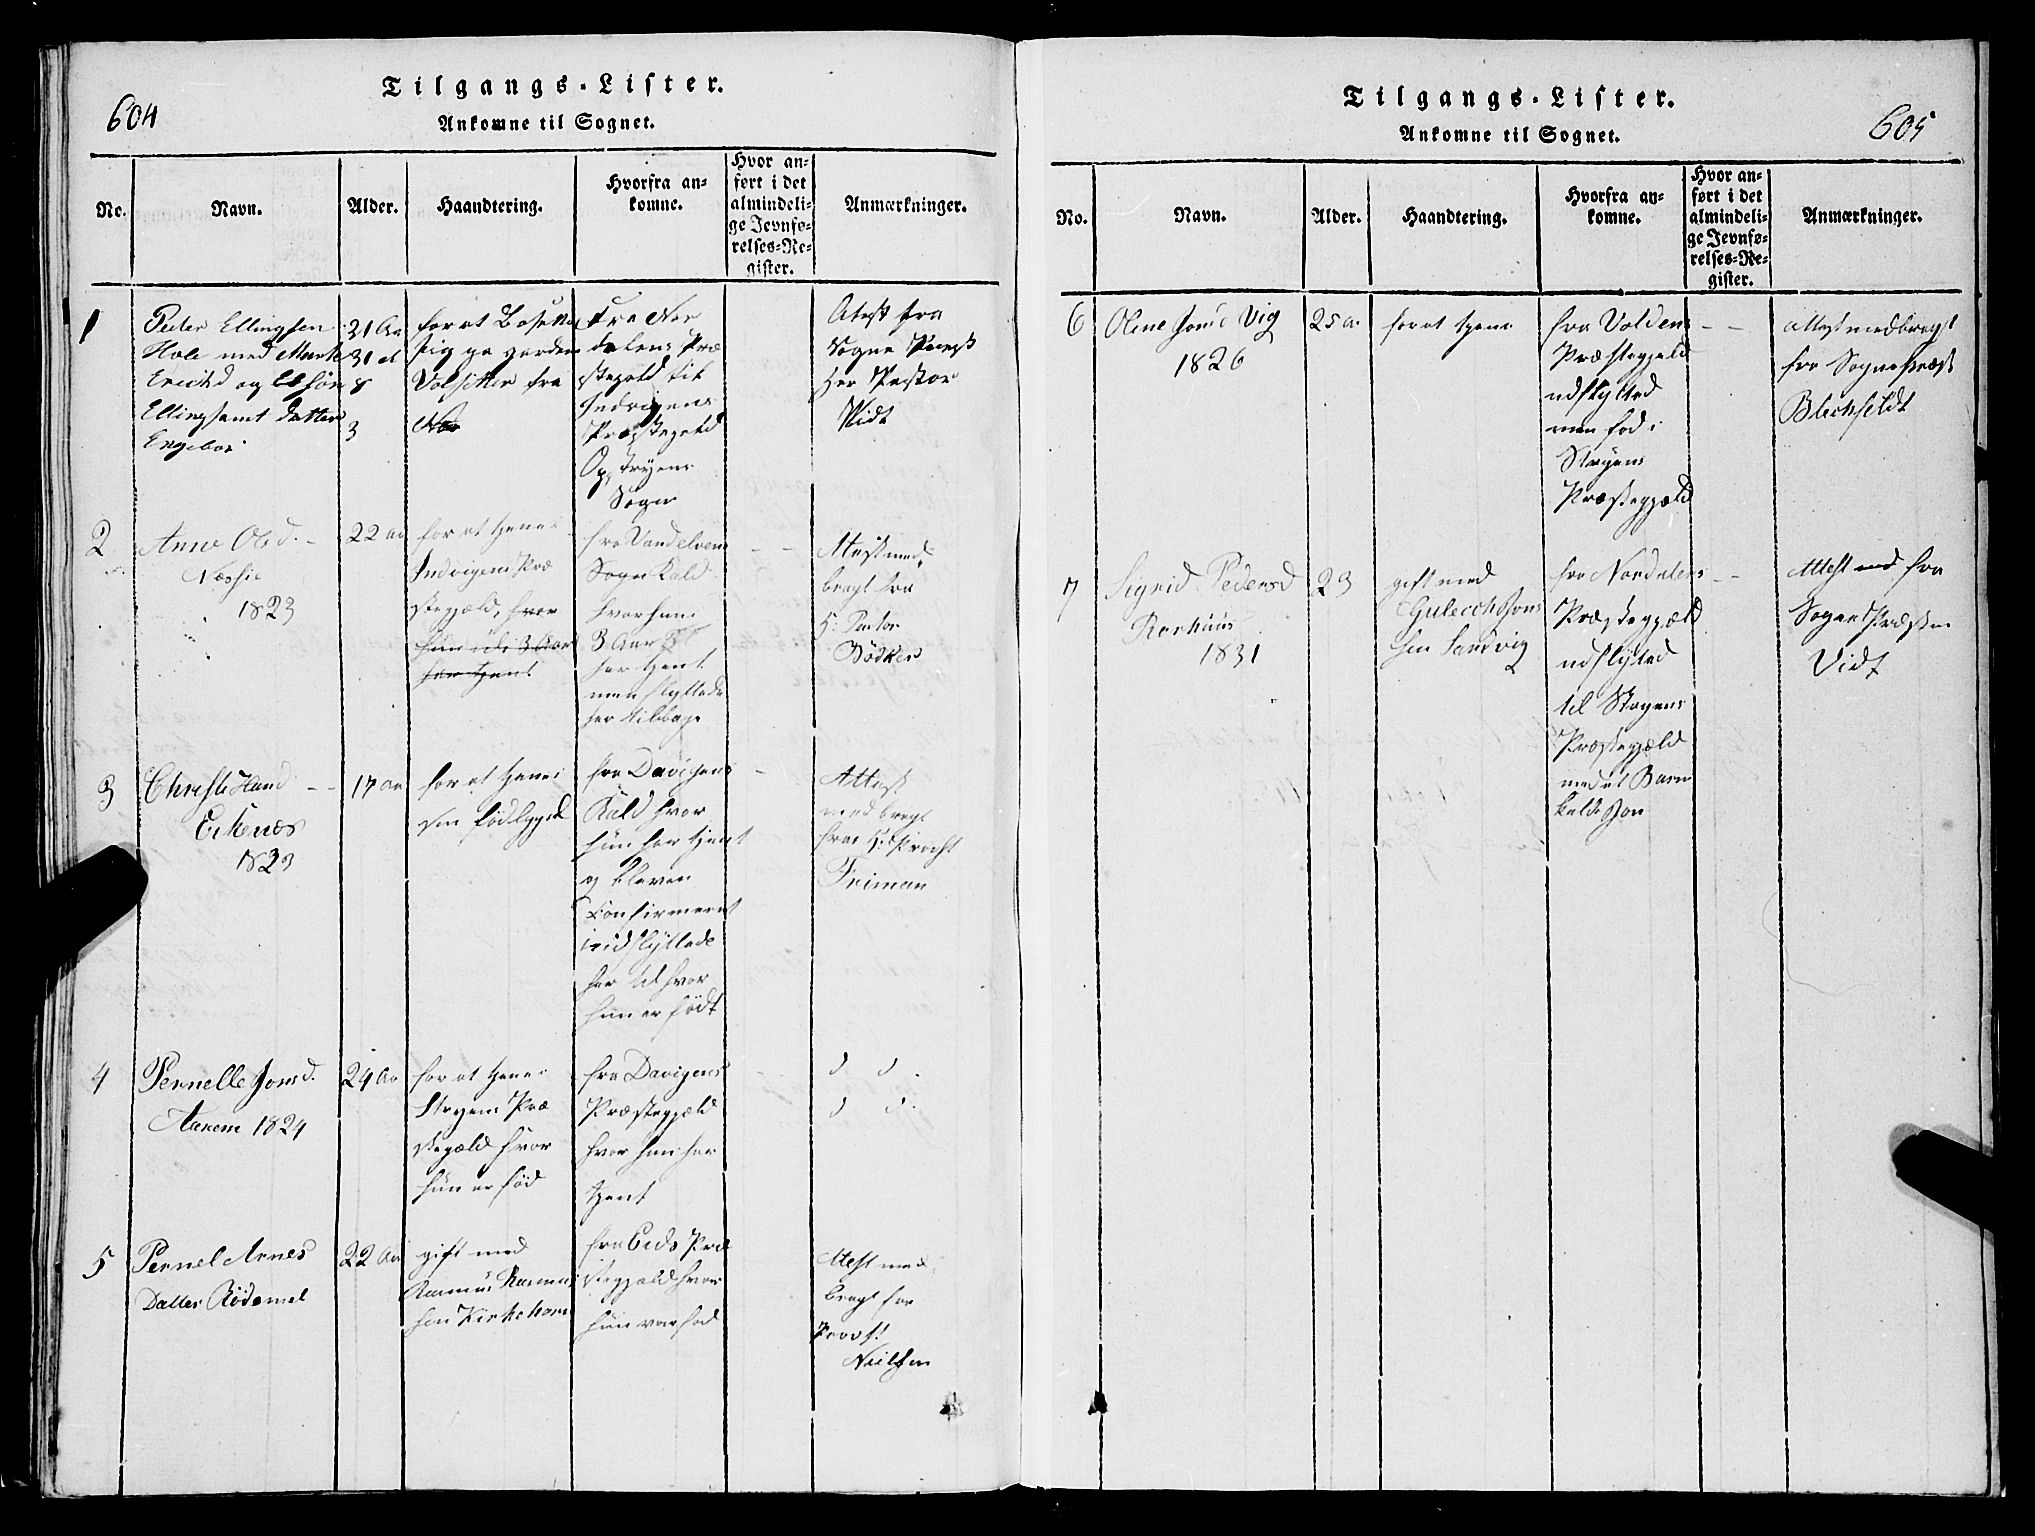 604
Tilgangs-Lister.
Ankomne til Sognet.
No.
Navn.
Alder.
Haandtering.
Hvorfra an-
komne.
Hvor an-
ført i det
almindeli-
ge Jevnfø-
relses-Re-
gister.
Anmærkninger.
1
Peder Ellingsen
Hole med Marte
Ericsd og
Elling samt datter
31 Aar
31 d
8
3
for at Bosætte
sig paa gorden
Volsetter fra
Fra Nor
dalens Præ
stegield til
Indvigens
Præstegield
Og Stryens
Sogn
Atest fra
Sogne Præst
Her Pastor
Vidt
2
Anne Olsd.
1823
22 aar
for at tjene i
Indvigens Præ
stegjæld, hvor
hun i de 3 Aar
har tjent
fra Vandelvens
Sogne Kald
hvor hun i
3 Aar
har tjent
men flyttede
her tilbage
Atest med
bragt fra
H. Pastor
Bødker
3
Christi Hansd
Erkenæs
1823
17 aar
for at tjene i
sin fødebygd
fra Davigens
Kald hvor
hun har tjent
og bleven
Confirmeret
udflyttede
her til hvor
hun er født
Attest
med bragt
fra H. Provst
Friman
4
Pernelle Jonsd.
Aarem 1824
24 Aar
for at tjene i
Stryens Præ
stegæld hvor
hun er fød
fra Davigens
Præstegjæld
hvor hun har
tjent
d d.
d d.
5
Pernel Arnes
Datter Rödsmel
22 Aar
gift med
Rasmus Rasmus
sen Kirkehorn
fra Eids Præ
stegjæld hvor
hun var fød
Atest med
bragt fra
Provst
Nielsen
Tilgangs-Lister.
Ankomne til Sognet.
605
No.
Navn.
Alder.
Haandtering.
Hvorfra an-
komne.
Hvor an-
ført i det
almindeli-
ge Jevnfø-
relses-Re-
gister.
Anmærkninger.
6
Oline Jonsd Vig
1826
25 a.
for at tjene
fra Voldens
Præstegjeld
udflytted
men fød i
Stryens
Præstegjæld
attest medbragt
fra Sognepræst
Blechfeldt
7
Sigrid Pedersd
Rorhuus
1831
23
gift med
Gulecch Jons
sen Sandvig
fra Nordalens
Præstegjæld
udflytted
til Stryens
Præstegjæld
med et Barn
kaldt Jon
Attest fra
Sogne Præsten
Vidt